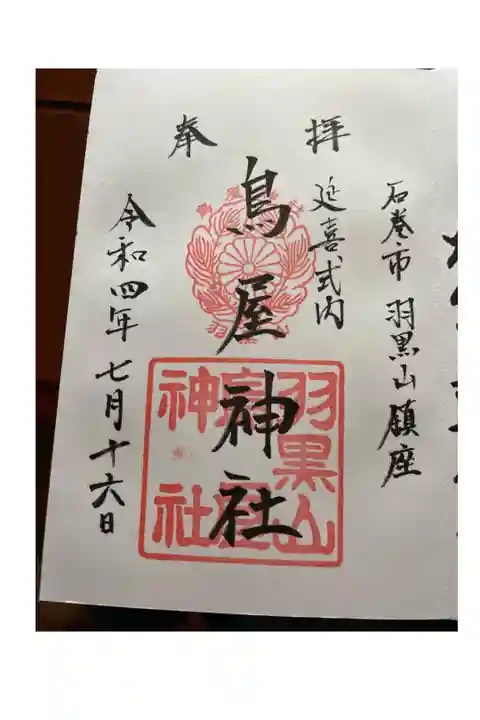 奉拝
石巻市 羽黒山 鎮座
延喜式内
鳥屋神社
令和四年七月十六日
羽黒山
鳥屋
神社